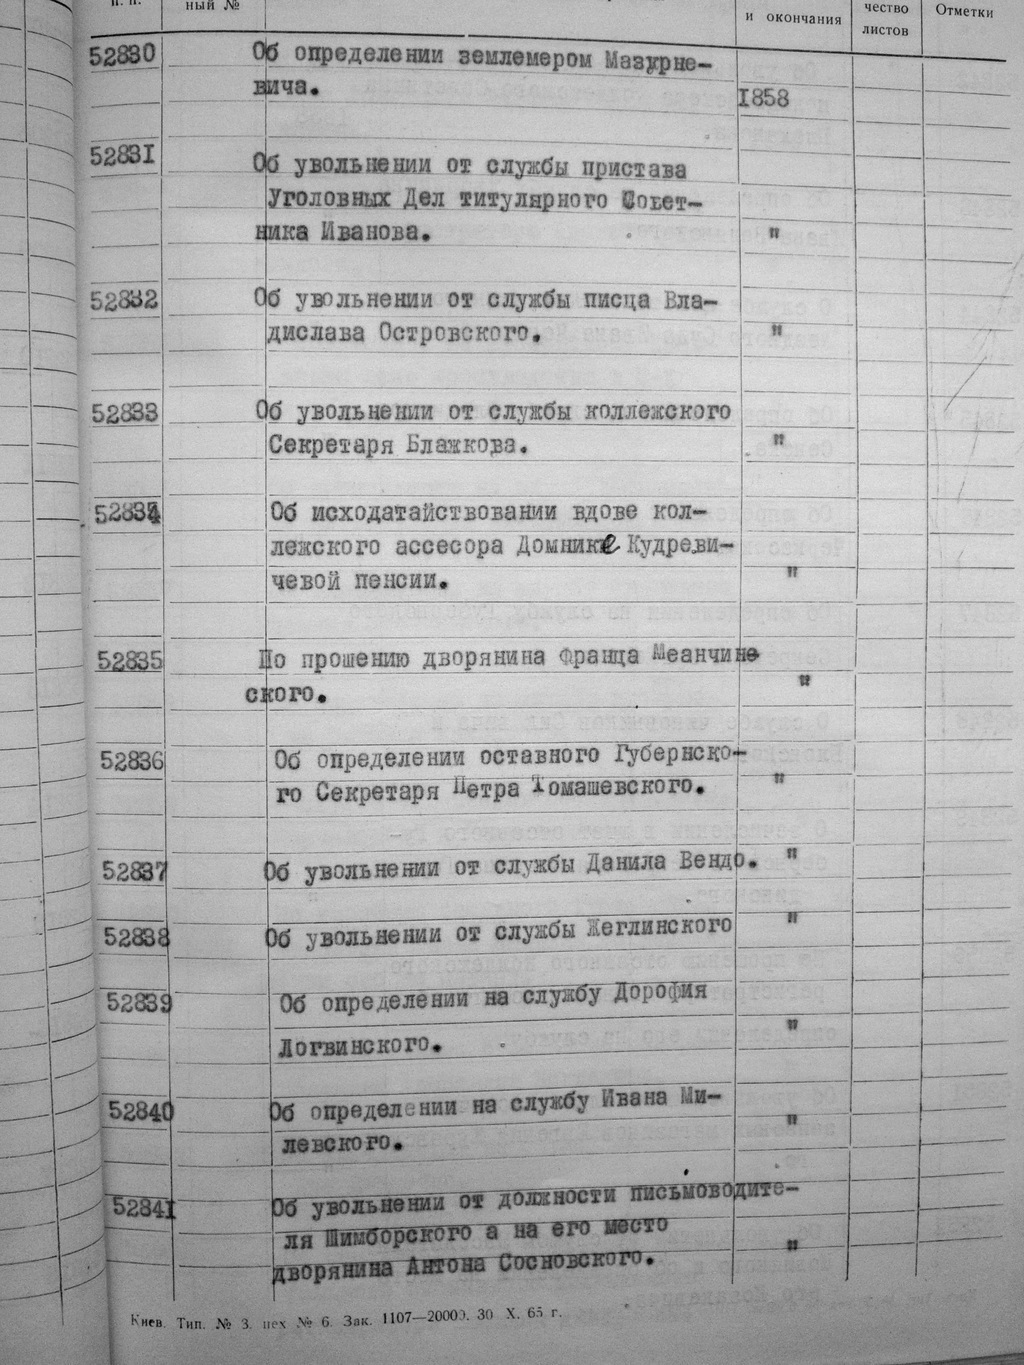 п. п.
ный №
и окончания
чество
листов
Отметки
52830 Об определении землемером Мазурке-
вича.
1858
52831 Об увольнении от службы пристава
Уголовных Дел титулярного Совет-
ника Иванова. "
52832 Об увольнении от службы писца Вла-
дислава Островского. "
52833 Об увольнении от службы коллежского
Секретаря Блажкова. "
52834 Об исходатайствовании вдове кол-
лежского ассесора Домнике Кудреви-
чевой пенсии. "
52835 По прошению дворянина Франца Меанчин
ского. "
52836 Об определении оставного Губернско-
го Секретаря Петра Томашевского. "
52837 Об увольнении от службы Данила Вендо. "
52838 Об увольнении от службы Жеглинского "
52839 Об определении на службу Дорофия
Логвинского. "
52840 Об определении на службу Ивана Ми-
левского. "
52841 Об увольнении от должности письмоводите-
ля Шимборского а на его место
дворянина Антона Сосновского. "
Киев. Тип. № 3. цех № 6. Зак. 1107—20000. 30 X. 65 г.